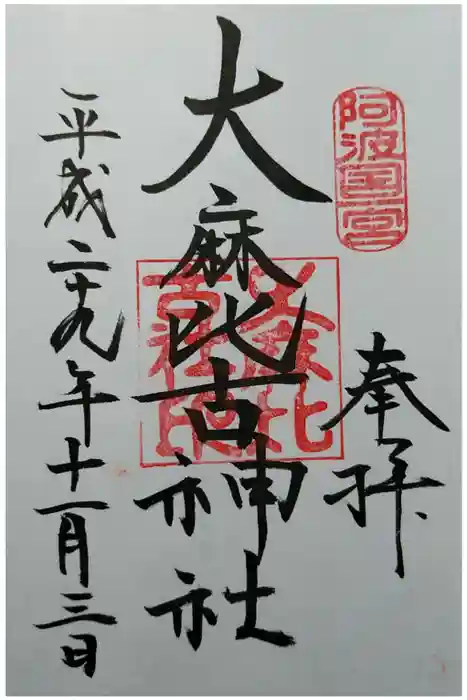 阿波国一宮
奉拝
大麻比古神社
大麻比古社印
平成二十九年十一月三日